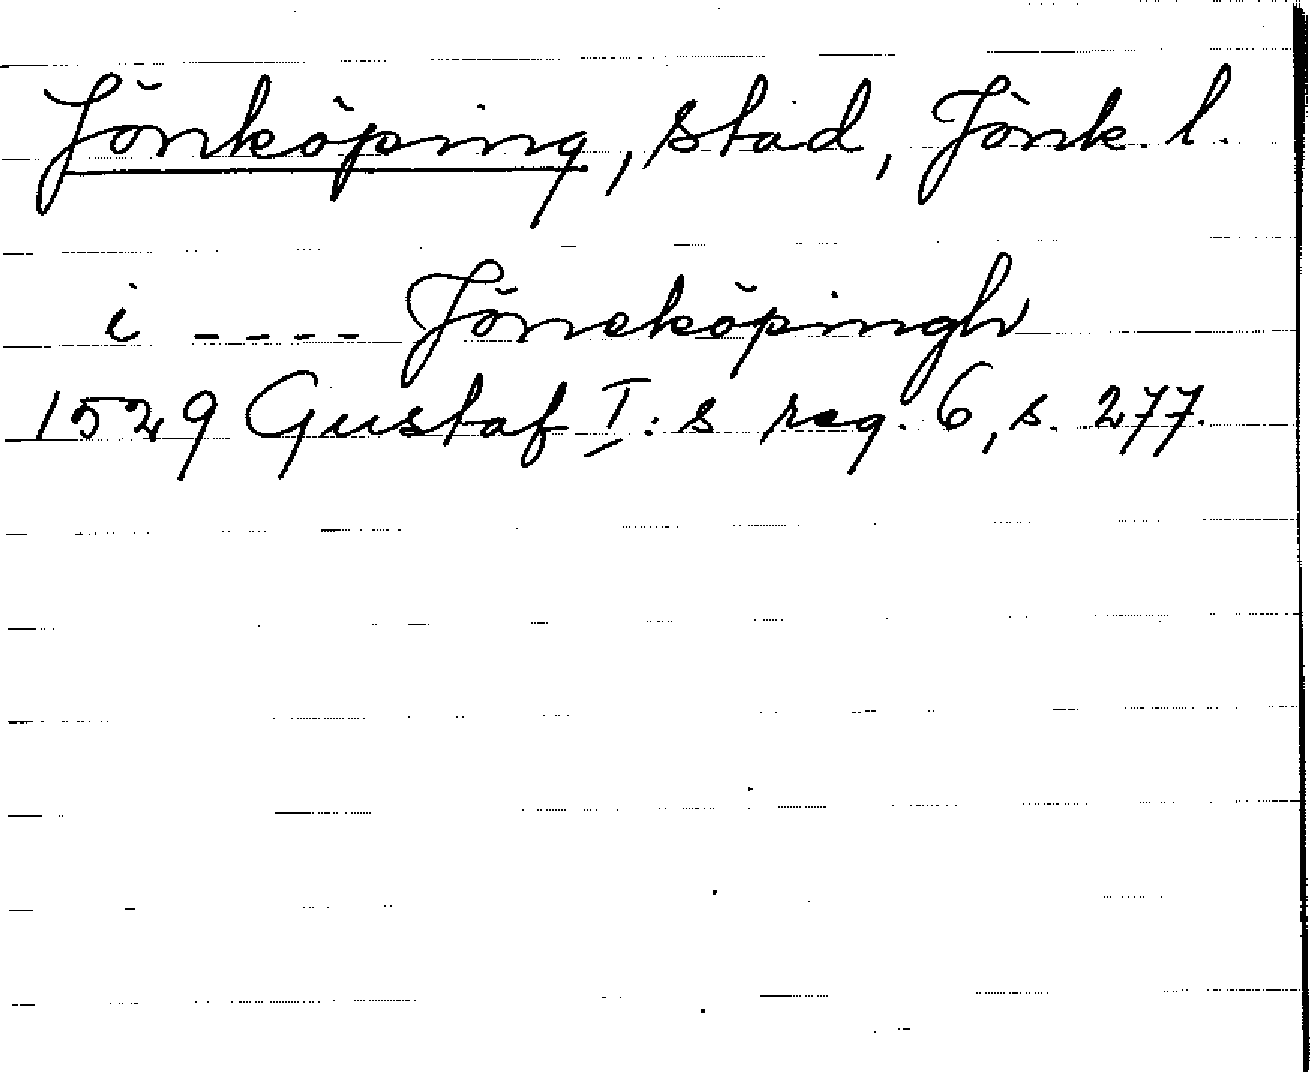 Jönköping, stad, Jönk. l.
i ---- Jöneköpingh
1529 Gustaf I:s reg. 6, s. 277.